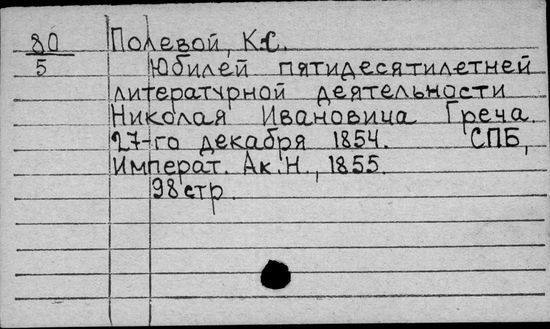 80
5
Полевой, К.С.
Юбилей пятидесятилетней
литературной деятельности
Николая Ивановича Греча.
27-го декабря 1854. СПБ,
Императ. Ак.Н., 1855.
98 стр.